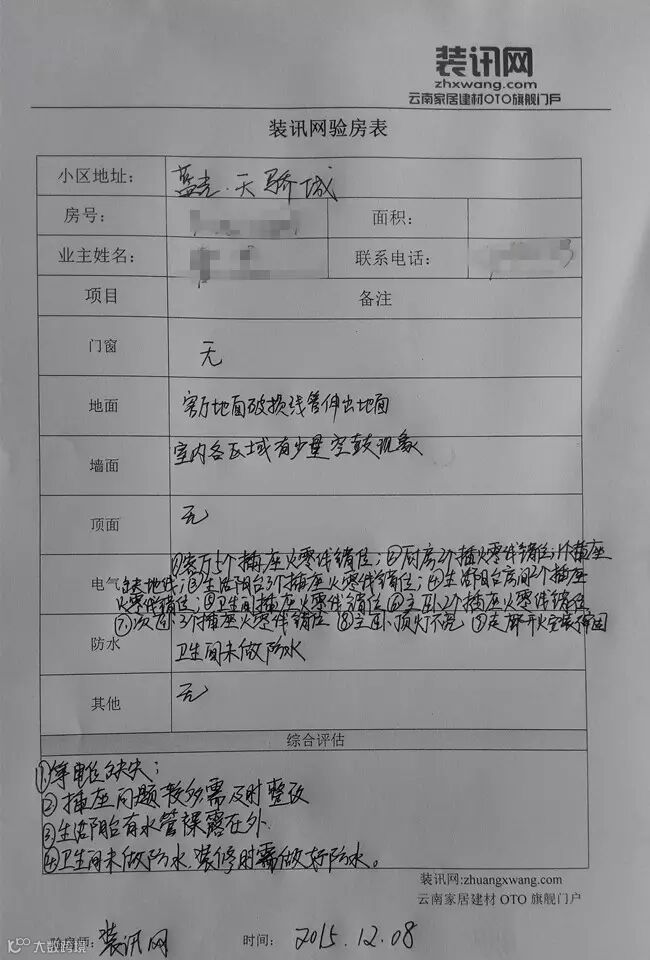 装讯网
zhxwang.com
云南家居建材OTO旗舰门户
装讯网验房表
小区地址: 蓝光·天骄城
房号: 面积:
业主姓名: 联系电话:
项目 备注
门窗 无
地面 客厅地面破损线管伸出地面
墙面 室内各区域有少量空鼓现象
顶面 无
电气 ①客厅5个插座火零线错位;②厨房2个插火零线错位,1个插座
缺地线;③生活阳台3个插座火零线错位;④生活阳台房间2个插座
火零线错位;⑤卫生间插座火零线错位⑥主卧2个插座火零线错位
⑦次卧3个插座火零线错位⑧主卧顶灯不亮⑨走廊开火安装
防水 卫生间未做防水
其他 无
综合评估
①等电位缺失;
②插座问题较多需及时整改
③生活阳台有水管裸露在外.
④卫生间未做防水.装修时需做好防水。
装讯网:zhuangxwang.com
云南家居建材 OTO 旗舰门户
验房师: 装讯网 时间: 2015.12.08
大数跨境